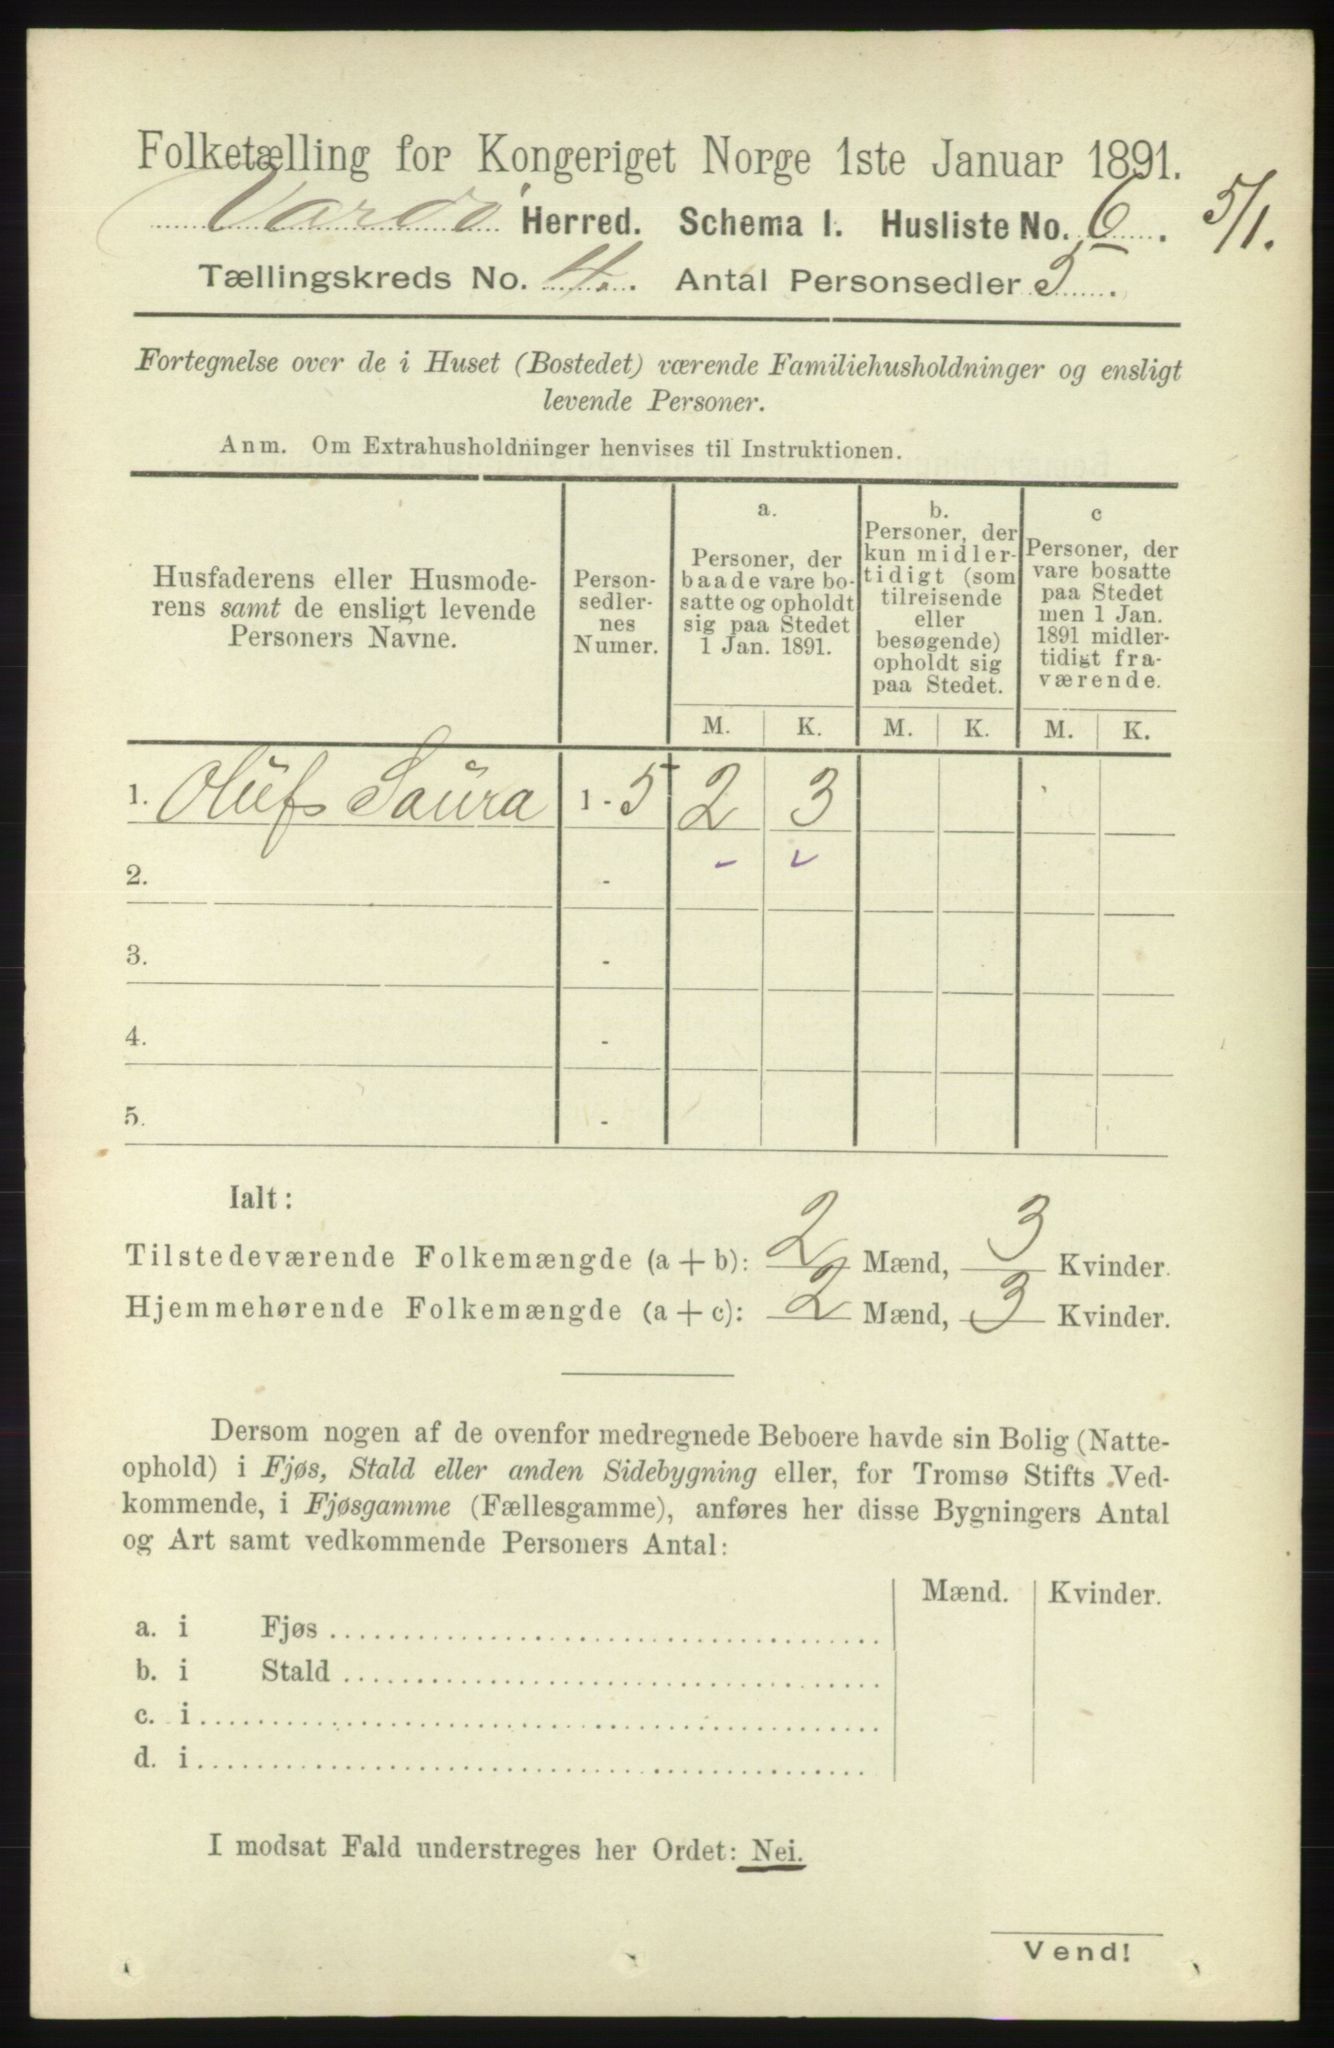 Folketælling for Kongeriget Norge 1ste Januar 1891.
Vardø Herred. Schema I. Husliste No. 6. 5/1.
Tællingskreds No. 4. Antal Personsedler 5.
Fortegnelse over de i Huset (Bostedet) værende Familiehusholdninger og ensligt
levende Personer.
Anm. Om Extrahusholdninger henvises til Instruktionen.
Husfaderens eller Husmode-
rens samt de ensligt levende
Personers Navne.
Person-
sedler-
nes
Numer.
a.
Personer, der
baade vare bo-
satte og opholdt
sig paa Stedet
1 Jan. 1891.
b.
Personer, der
kun midler-
tidigt (som
tilreisende
eller
besøgende)
opholdt sig
paa Stedet.
c
Personer, der
vare bosatte
paa Stedet
men 1 Jan.
1891 midler-
tidigt fra-
værende.
M. K. M. K. M. K.
1. Oluf Saura 1 - 5 2 3
2. -
3. -
4. -
5. -
Ialt:
Tilstedeværende Folkemængde (a + b): 2 Mænd, 3 Kvinder.
Hjemmehørende Folkemængde (a + c): 2 Mænd, 3 Kvinder.
Dersom nogen af de ovenfor medregnede Beboere havde sin Bolig (Natte-
ophold) i Fjøs, Stald eller anden Sidebygning eller, for Tromsø Stifts Ved-
kommende, i Fjøsgamme (Fællesgamme), anføres her disse Bygningers Antal
og Art samt vedkommende Personers Antal:
Mænd. Kvinder.
a. i Fjøs
b. i Stald
c. i
d. i
I modsat Fald understreges her Ordet: Nei.
Vend!